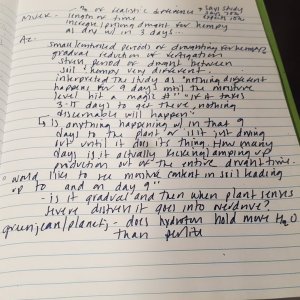 % of realistic difference → Says study
Muck: length of time
increase/prolong drought for hempy
as dry w/in 3 days.
Az: small controlled period of droughting for hemp?
gradual reduction of fertigation
stress, period of dment between
soil & hempy very different
interpreted the study as "nothing different
happens for 9 days until the moisture
level hit a magic #" "if it takes
3-15 days to get there, nothing
discernable will happen"
↳ is anything happening w/in that 9
days to the plant or is it just drying
out until it does its thing. How many
days is it actually kicking/amping up
production out of the entire drought time.
would like to see moisture content in soil leading
up to and on day 9"
- is it gradual and then when plant senses
severe distress it goes into overdrive?
green jean/planet: - does hydroton hold more H2O
than perlite